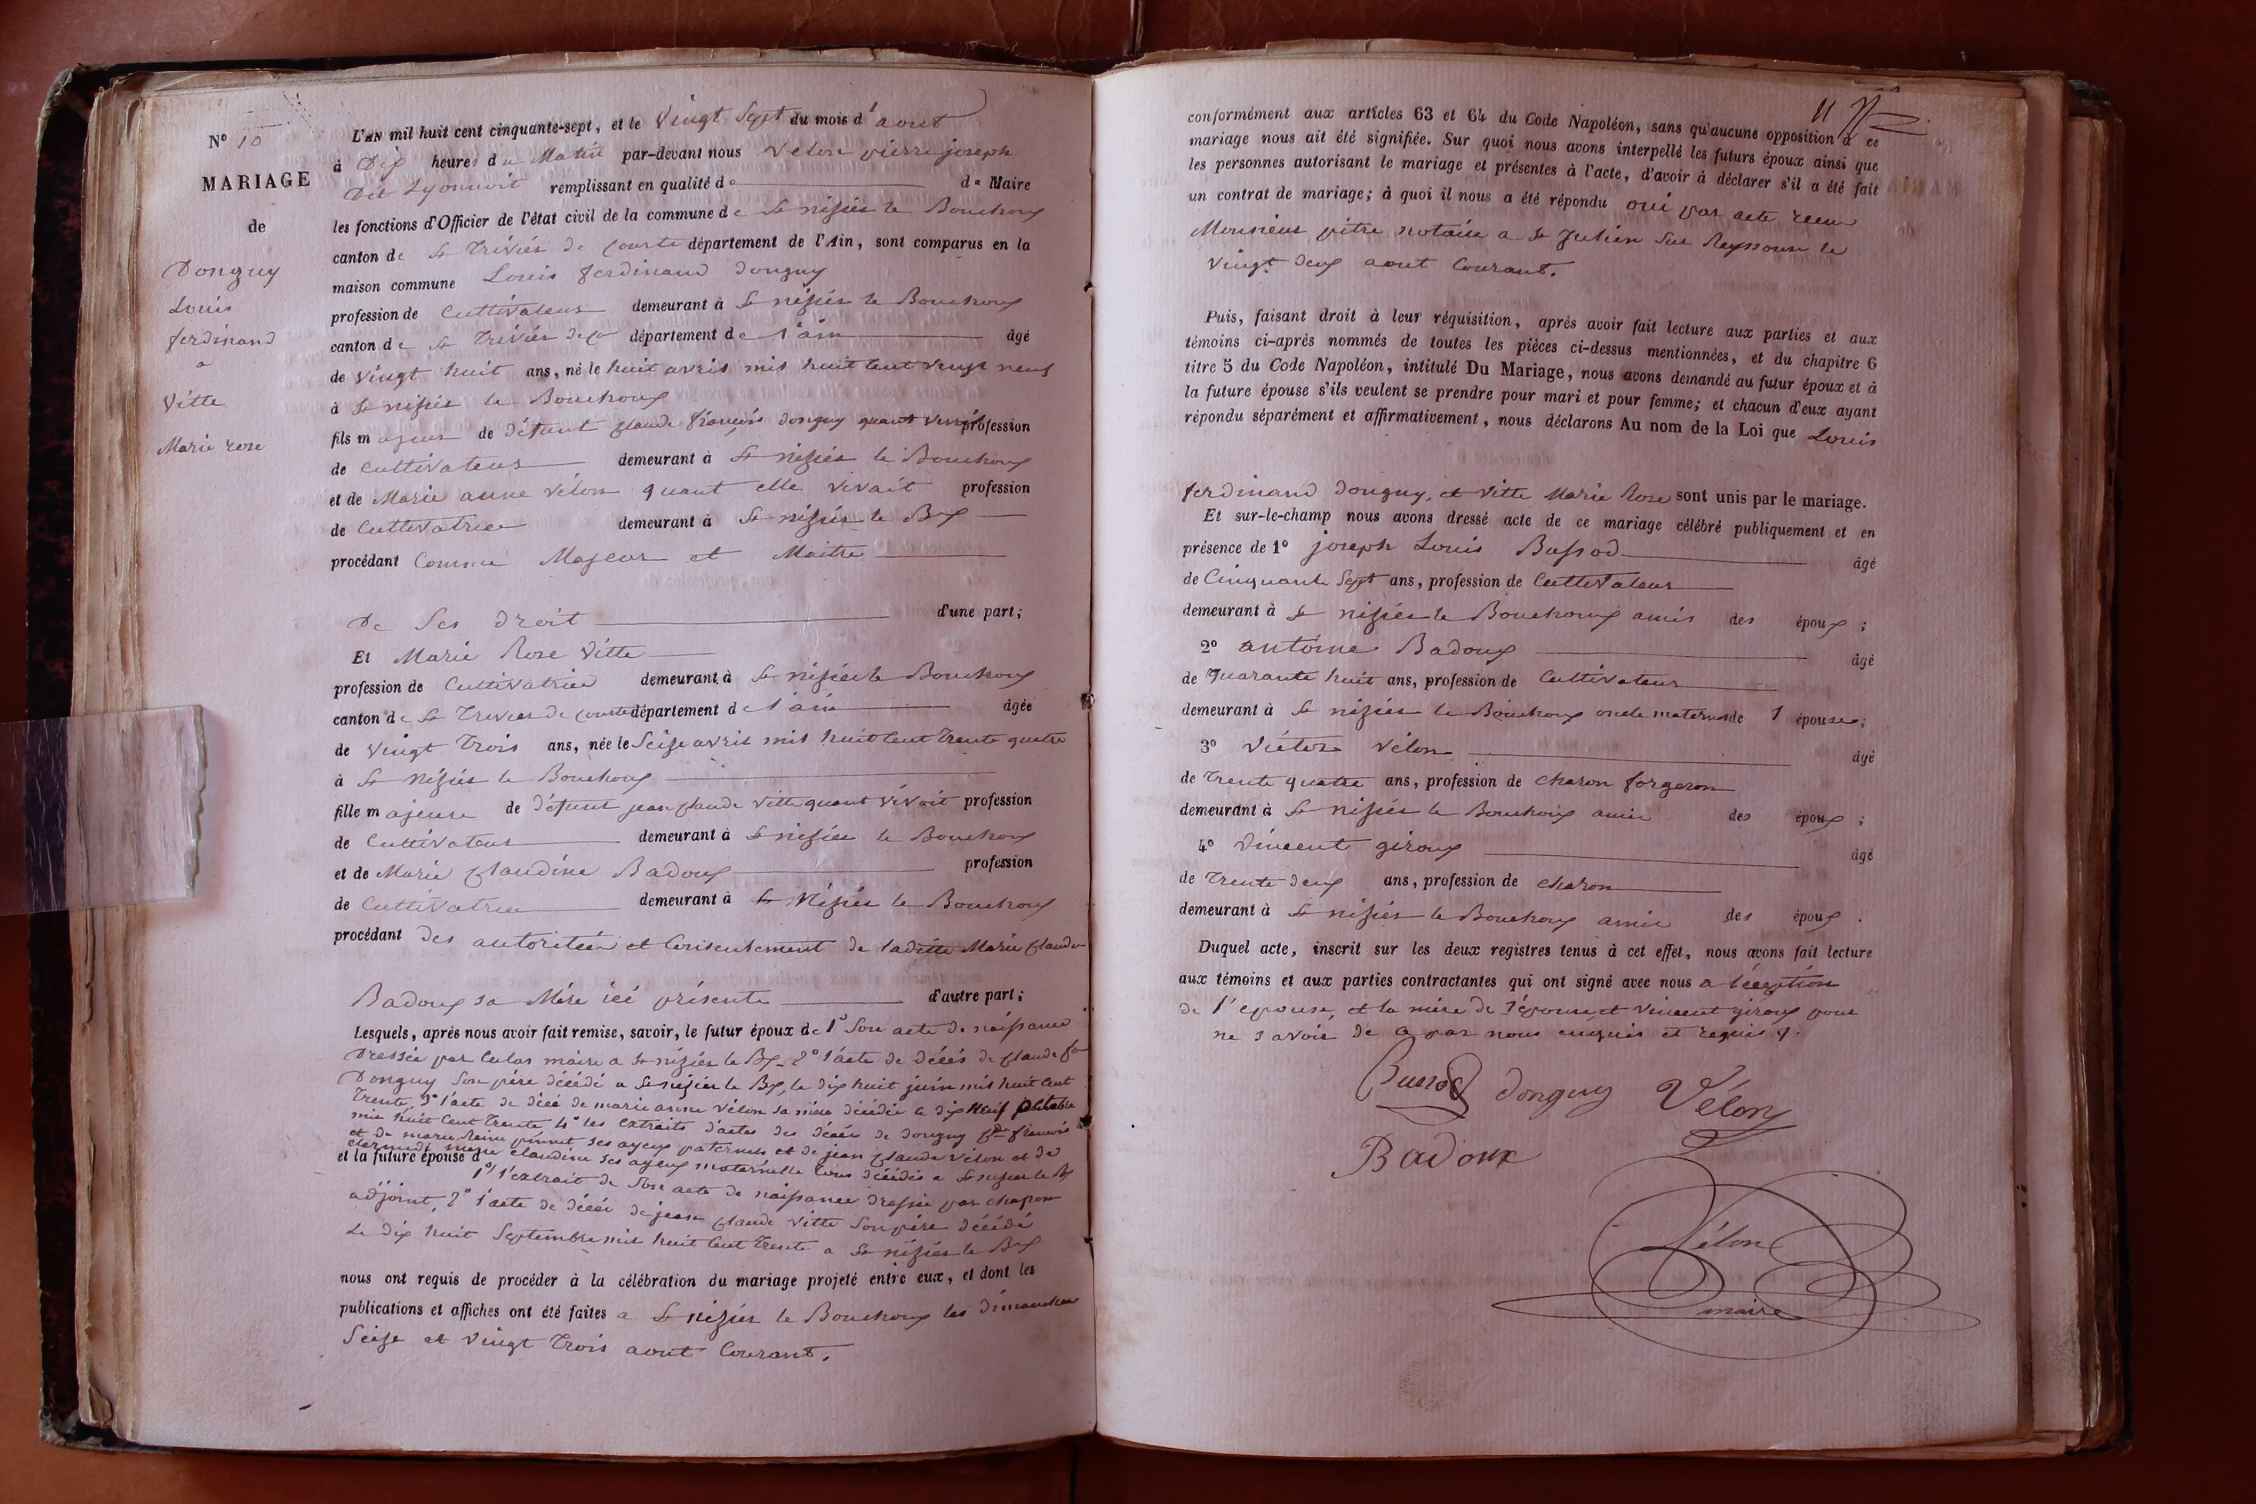 N° 10
MARIAGE
de
Donguy
Louis
ferdinand
a
Vitte
Marie rose
L'AN mil huit cent cinquante-sept, et le Vingt Sept du mois d'aout
à Dix heures du Matin par-devant nous Vélon pierre joseph
Dit Lyonnoit remplissant en qualité de de Maire
les fonctions d'Officier de l'état civil de la commune de St nizier le Bouchoux
canton de St Triviér de Courte département de l'Ain, sont comparus en la
maison commune Louis ferdinand donguy
profession de Cultivateur demeurant à St nizier le Bouchoux
canton de St Triviér de Co département de l'ain âgé
de Vingt huit ans, né le huit avril mil huit Cent Vingt neuf
à St nizier le Bouchoux
fils majeur de défunt Claude françois donguy quant vivoit profession
de Cultivateur demeurant à St nizier le Bouchoux
et de Marie anne Vélon quant elle vivait profession
de Cultivatrice demeurant à St nizier le Bx
procédant Comme Majeur et Maitre
De Ses droit d'une part;
Et Marie Rose Vitte
profession de Cultivatrice demeurant à St nizier le Bouchoux
canton de St Trivier de Courte département de l'ain âgée
de Vingt Trois ans, née le Seize avril mil huit Cent Trente quatre
à St Nizier le Bouchoux
fille majeure de défunt jean Claude Vitte quant vivoit profession
de Cultivateur demeurant à St nizier le Bouchoux
et de Marie Claudine Badoux profession
de Cultivatrice demeurant à St Nizier le Bouchoux
procédant des autoritée et Consentement de laditte Marie Claudine
Badoux sa Mére ici présente d'autre part;
Lesquels, après nous avoir fait remise, savoir, le futur époux de 1° Son acte de naissance
Dressée par Culas maire a St nizier le Bx 2° l'acte de décés de Claude fois
Donguy Son pére décédé a St nizier le Bx, le dix huit juin mil huit Cent
Trente, 3° l'acte de décé de marie anne Vélon sa mére décédée le dix Neuf
mil huit Cent Trente 4° les extraits d'actes des décés de donguy françois
et de marie Reine ses ayeux paternels et de jean Claude Vélon et de
et la future épouse d Claudine ses ayeux maternelle tous décédés a St nizier le Bx
1° l'extrait de Son acte de naissance dressée par chapon
adjoint, 2° l'acte de décés de jean Claude Vitte Son pére décédé
Le dix huit Septembre mil huit Cent Trente a St nizier le Bx
nous ont requis de procéder à la célébration du mariage projeté entre eux, et dont les
publications et affiches ont été faites a St nizier le Bouchoux les dimanches
Seize et Vingt Trois aout Courant.
11
conformément aux articles 63 et 64 du Code Napoléon, sans qu'aucune opposition à ce
mariage nous ait été signifiée. Sur quoi nous avons interpellé les futurs époux ainsi que
les personnes autorisant le mariage et présentes à l'acte, d'avoir à déclarer s'il a été fait
un contrat de mariage; à quoi il nous a été répondu oui par acte recu
Monsieur pitre notaire a St Julien Sur Reyssouse le
Vingt deux aout Courant.
Puis, faisant droit à leur réquisition, après avoir fait lecture aux parties et aux
témoins ci-après nommés de toutes les pièces ci-dessus mentionnées, et du chapitre 6
titre 5 du Code Napoléon, intitulé Du Mariage, nous avons demandé au futur époux et à
la future épouse s'ils veulent se prendre pour mari et pour femme; et chacun d'eux ayant
répondu séparément et affirmativement, nous déclarons Au nom de la Loi que Louis
ferdinand Donguy, et Vitte Marie Rose sont unis par le mariage.
Et sur-le-champ nous avons dressé acte de ce mariage célébré publiquement et en
présence de 1° joseph Louis Bussod âgé
de Cinquante Sept ans, profession de Cultivateur
demeurant à St nizier le Bouchoux amis des époux;
2° antoine Badoux âgé
de quarante huit ans, profession de Cultivateur
demeurant à St nizier le Bouchoux oncle maternel de l épouse;
3° Victor Vélon âgé
de Trente quatre ans, profession de charon forgeron
demeurant à St nizier le Bouchoux amis des époux;
4° Vincent giroux âgé
de Trente deux ans, profession de charon
demeurant à St nizier le Bouchoux amis des époux.
Duquel acte, inscrit sur les deux registres tenus à cet effet, nous avons fait lecture
aux témoins et aux parties contractantes qui ont signé avec nous a l'éxeption
de l'epouse, et la mère de l'épouse et Vincent giroux pour
ne savoir de a par nous enquis et requis.
Bussod donguy Vélon
Badoux
Vélon
maire